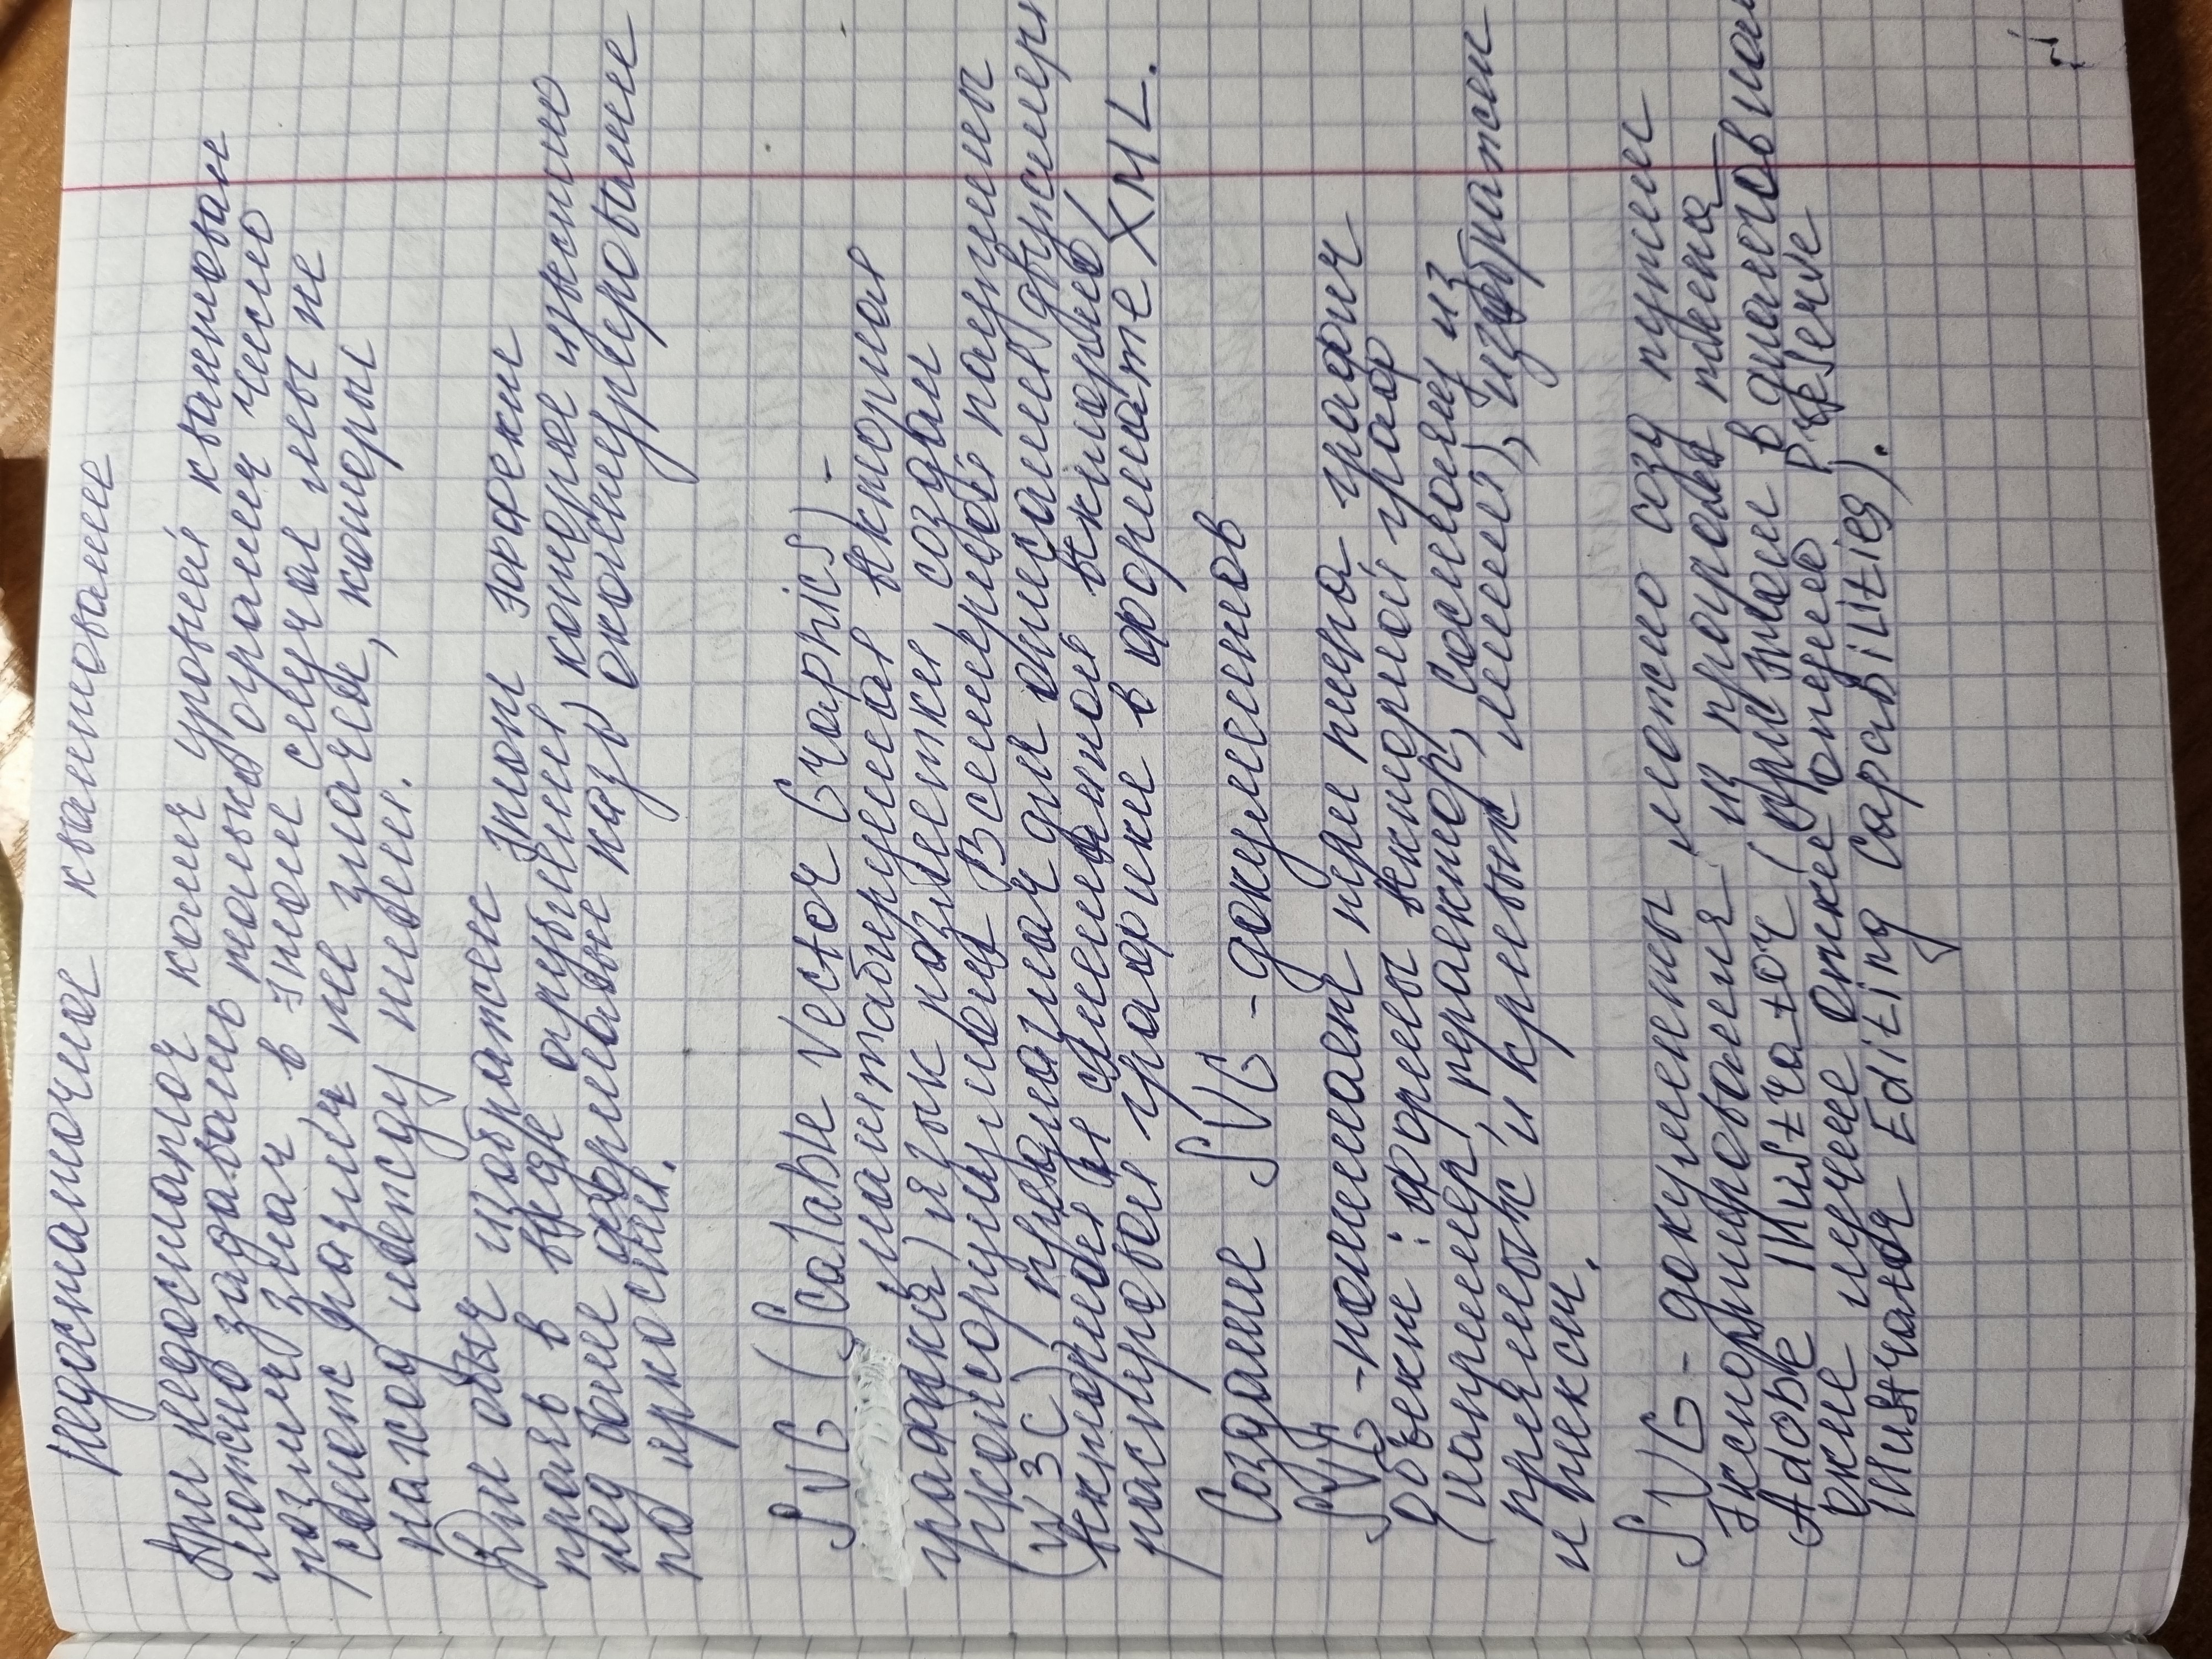 Недостаточное квантование
При недостаточ колич уровней квантован
можно задавать только огранич число
различ знач, в этом случае мы не
смож различ те значен, которые
наход между ними.
Для обыч изображен этот эффект
прояв в виде огрубления, которое известно
под более формальн назв оконтурирование
по яркости.
SVG (Scalable Vector Graphics) -
маштабируемая векторная
графика) язык разметки, создан
консорциумом Всемирной паутины
(W3C), предназнач для описания двухмерн
векторной и смешанной векторно/
растровой графики в формате XML.
Создание SVG - документов
SVG - понимает три типа график
объект: формы векторной граф
(например, прямоектор, состоящ из
прямых и кривых линий), изображен
и текст.
SVG - документы можно созд путем
экспортирования из програм типа
Adobe Illustrator (при этом в диалоговном
окне лучше откл опцию Preserve
Illustrator Editing Capabilities).